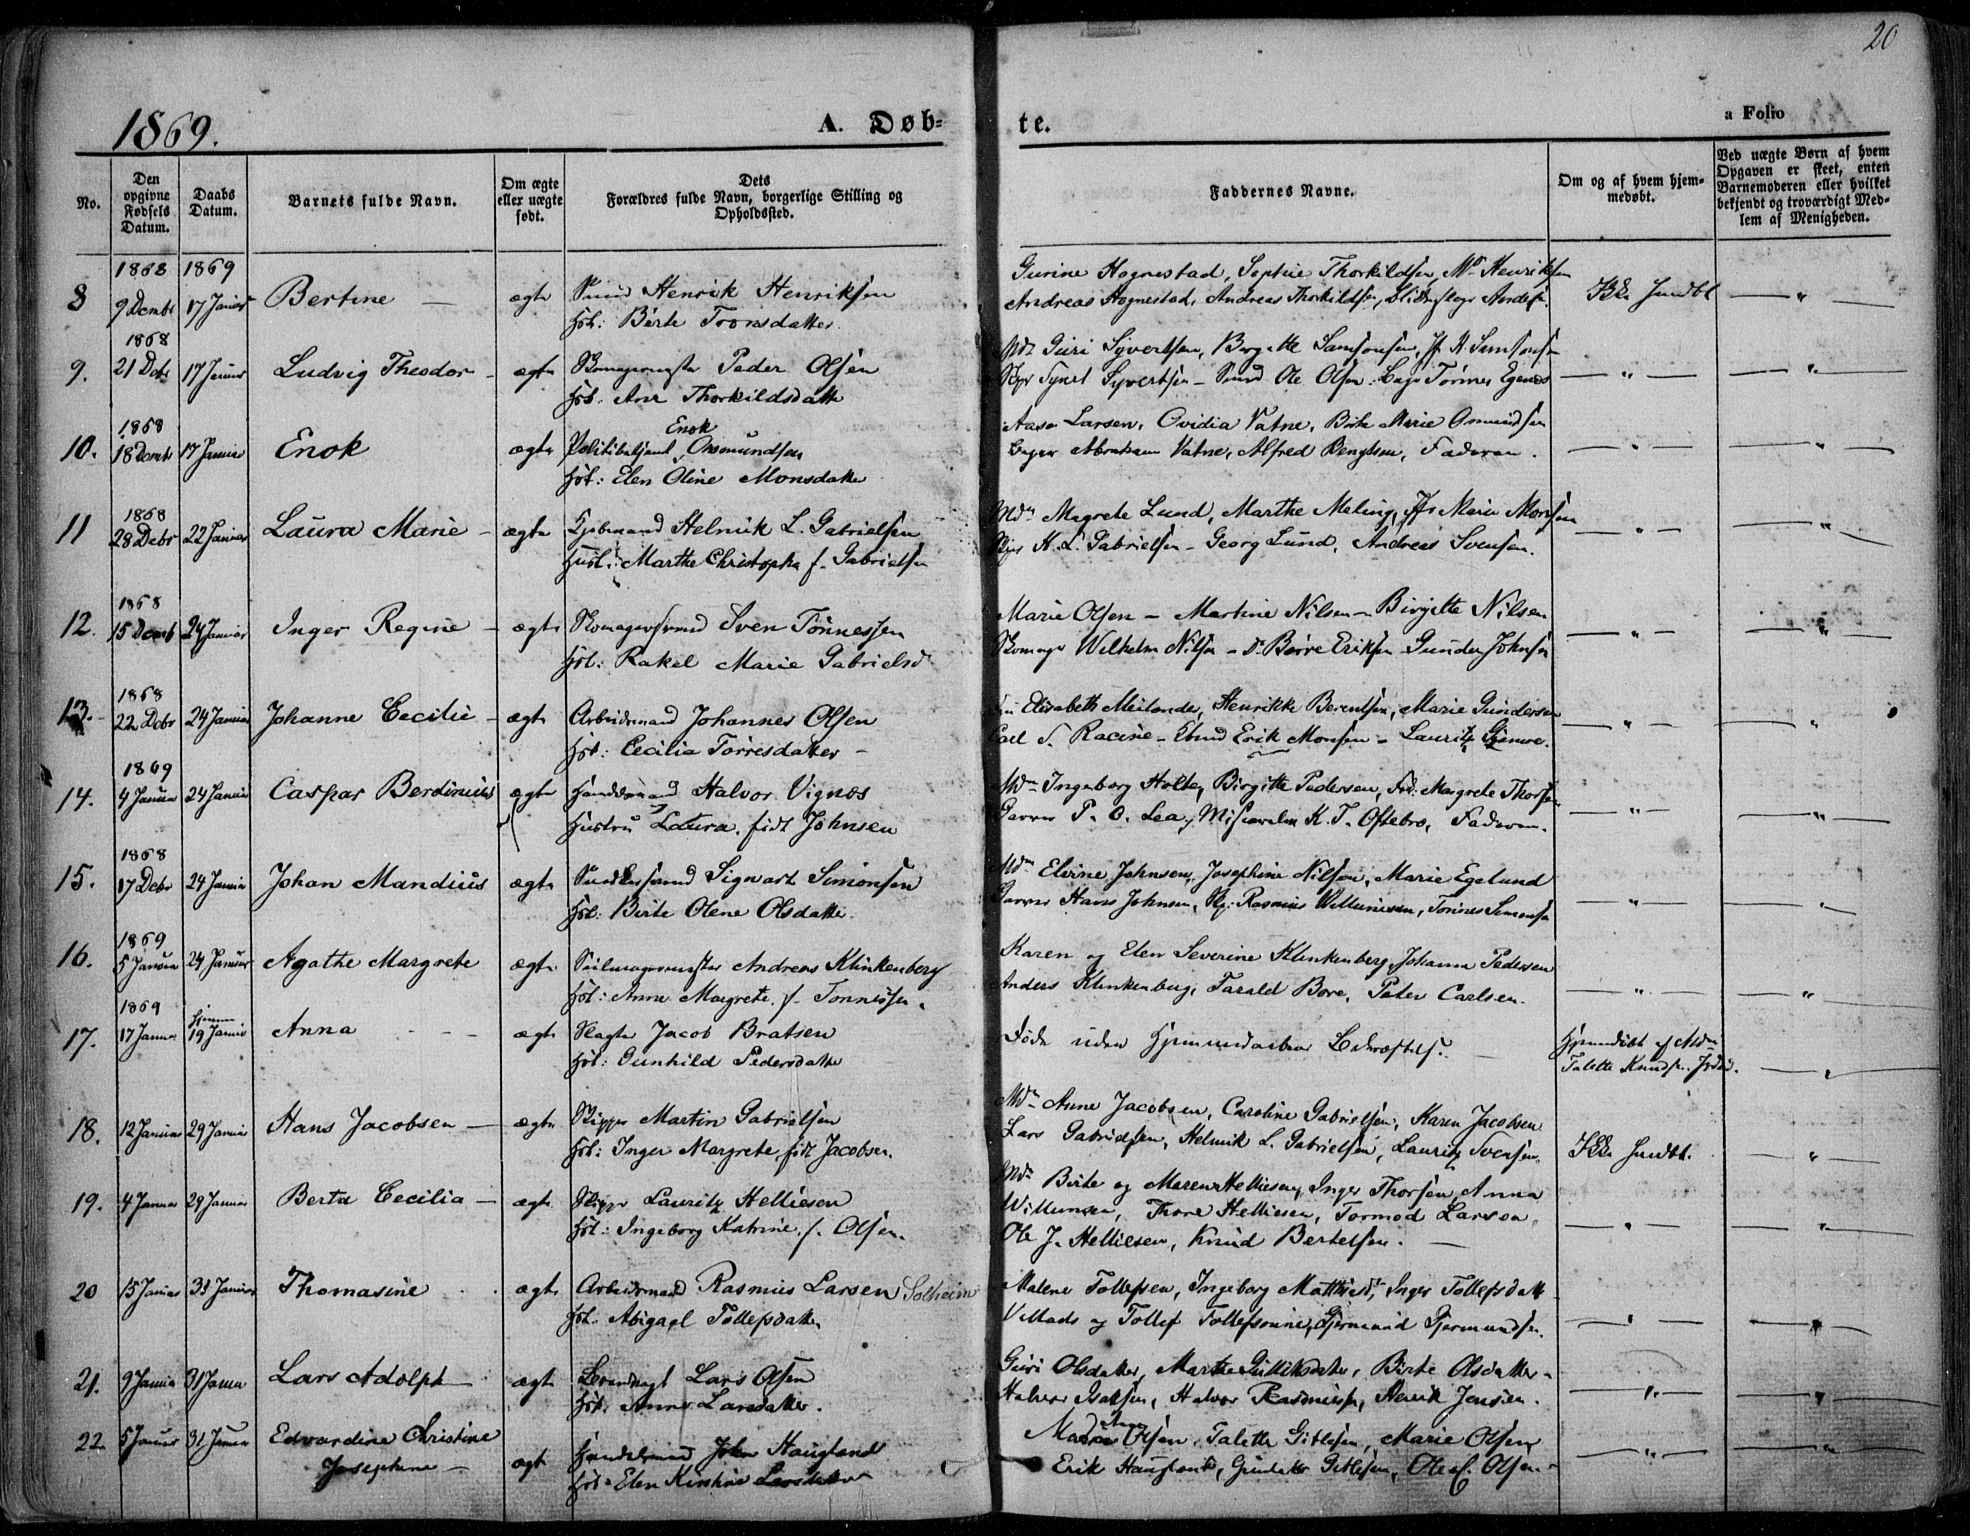 20
1869.
A. Døb-
te.
a Folio
No.
Den opgivne Fødsels Datum.
Daabs Datum.
Barnets fulde Navn.
Om ægte eller uægte født.
Dets Forældres fulde Navn, borgerlige Stilling og Opholdssted.
Faddernes Navne.
Om og af hvem hjemmedøbt.
Ved uægte Børn af hvem Opgaven er skeet, enten Barnemoderen eller hvilket bekjendt og troværdigt Medlem af Menigheden.
1868 1869
8 9 Dembr 17 Januar Bertine — ægte Henrik Henriksen
Hst: Birte Tronsdatter.
Gurine Hognestad, Sophie Thorkildsen, Mn Henriksen
Andreas Hognestad, Andreas Thorkildsen,
Ikke
1868
9. 21 Debr 17 Januar Ludvig Theodor — ægte Peder Olsen
Hst. Ane Thorkildsdatter
Mdm Guri Syvertsen, Birgitte Samsonsen,
Syvert Syvertsen — Ole Olsen.
1868
10. 18 Decmbr 17 Januar Enok ægte Politibetjent Enok Aasmundsen
Hst: Elen Oline Monsdatter
Aase Larsen, Ovidia Vatne, Birte Marie Osmundsen
Abraham Vatne, Alfred Bengtsen, Faderen.
1868
11 28 Debr 22 Januar Laura Marie — ægte Kjøbmand Helmik L. Gabrielsen
Hust: Marthe f. Gabrielsen
Mdm Magrete Lund, Marthe Meling, Marie Monsen
H. L. Gabrielsen — Georg Lund, Andreas Svensen.
1868
12. 15 Decmb 24 Januar Inger Regine — ægte Skomagersvend Sven Tønnessen
Hst: Rakel Marie Gabrielsd
Marie Olsen — Martine Nilsen — Birgitte Nilsen
Skomager Wilhelm Nilsen — Børre Eriksen Gunder Johnsen
1868
13. 22 Debr 24 Januar Johanne Cecilie — ægte Arbeidsmand Johannes Olsen
Hst: Cecilia Torresdatter —
Elisabeth Meilander, Henrikke Berentsen, Marie Gundersen
Carl S. Racine — Erik Monsen — Lauritz
1869
14. 4 Januar 24 Januar Caspar Berdinius ægte Halvor Vignæs
Hustru Laura født Johnsen
Mdm Ingeborg Holte, Birgitte Pedersen, Margrete Thorsen
Garver P. O. Lea, K. T. Oftebro, Faderen.
1868
15. 17 Debr 24 Januar Johan Mandius ægte Sigvart Simonsen
Hst: Birte Olene Olsdatter.
Mdm Elvine Johnsen, Josephine Nilsen, Marie Egelund
Garver Hans Johnsen, Rasmus Willumsen, Tønnes Simonsen
1869
16. 5 Januar 24 Januar Agathe Margrete ægte Seilmagermester Andreas Klinkenberg
Hst: Anne Margrete f. Tønnesen.
Karen og Elen Severine Klinkenberg, Johanna Pedersen
Anders Klinkenberg, Tarald Bore, Peter Carlsen.
1869
17. 17 Januar hjemme 19 Januar Anna ægte Slagter Jacob Bratsen
Hst: Gunhild Pedersdatter
Døde uden Hjemmedaabens Bekræftelse. —
Hjemmedøbt af Mdm
Talette Knudsen Jrdm.
18. 12 Januar 29 Januar Hans Jacobsen — ægte Skipper Martin Gabrielsen
Hst: Inger Margrete født Jacobsen.
Mdm Anne Jacobsen, Caroline Gabrielsen, Karen Jacobsen
Lars Gabrielsen, Helmik L. Gabrielsen, Lauritz Svensen.
Ikke
19. 4 Januar 29 Januar Berta Cecilia — ægte Skipper Lauritz Helliesen
Hst: Ingeborg Katrine f. Olsen.
Mdm Birte og Maren Helliesen, Inger Thorsen, Anna
Willumsen, Thore Helliesen, Tormod Larsen,
Ole J. Helliesen, Knud Bertelsen. —
20 15 Januar 31 Januar Thomasine ægte Arbeidsmand Rasmus Larsen Solheim
Hst. Abigael Tollefsdatter
Malene Tollefsen, Ingeborg Matthisd, Inger Tollefsdatter
Villads og Tollef Tollefsønner, Gjermund Gjermundsen.
21. 9 Januar 31 Januar Lars Adolph — ægte Lars Olsen
Hst. Anne Larsdatter.
Guri Olsdatter, Marthe Gulliksdatter, Birte Olsdatter —
Halvor Isaksen, Halvor Rasmussen, Henrik Jensen.
22 5 Januar 31 Januar Edvardine Christine
Josephine — ægte Handelsmand John Haugland
Hst. Elen Kirstine Larsdatter
Anna Olsen, Talette Gitlesen, Marie Olsen,
Erik Haugland, Gitlesen, Olsen.